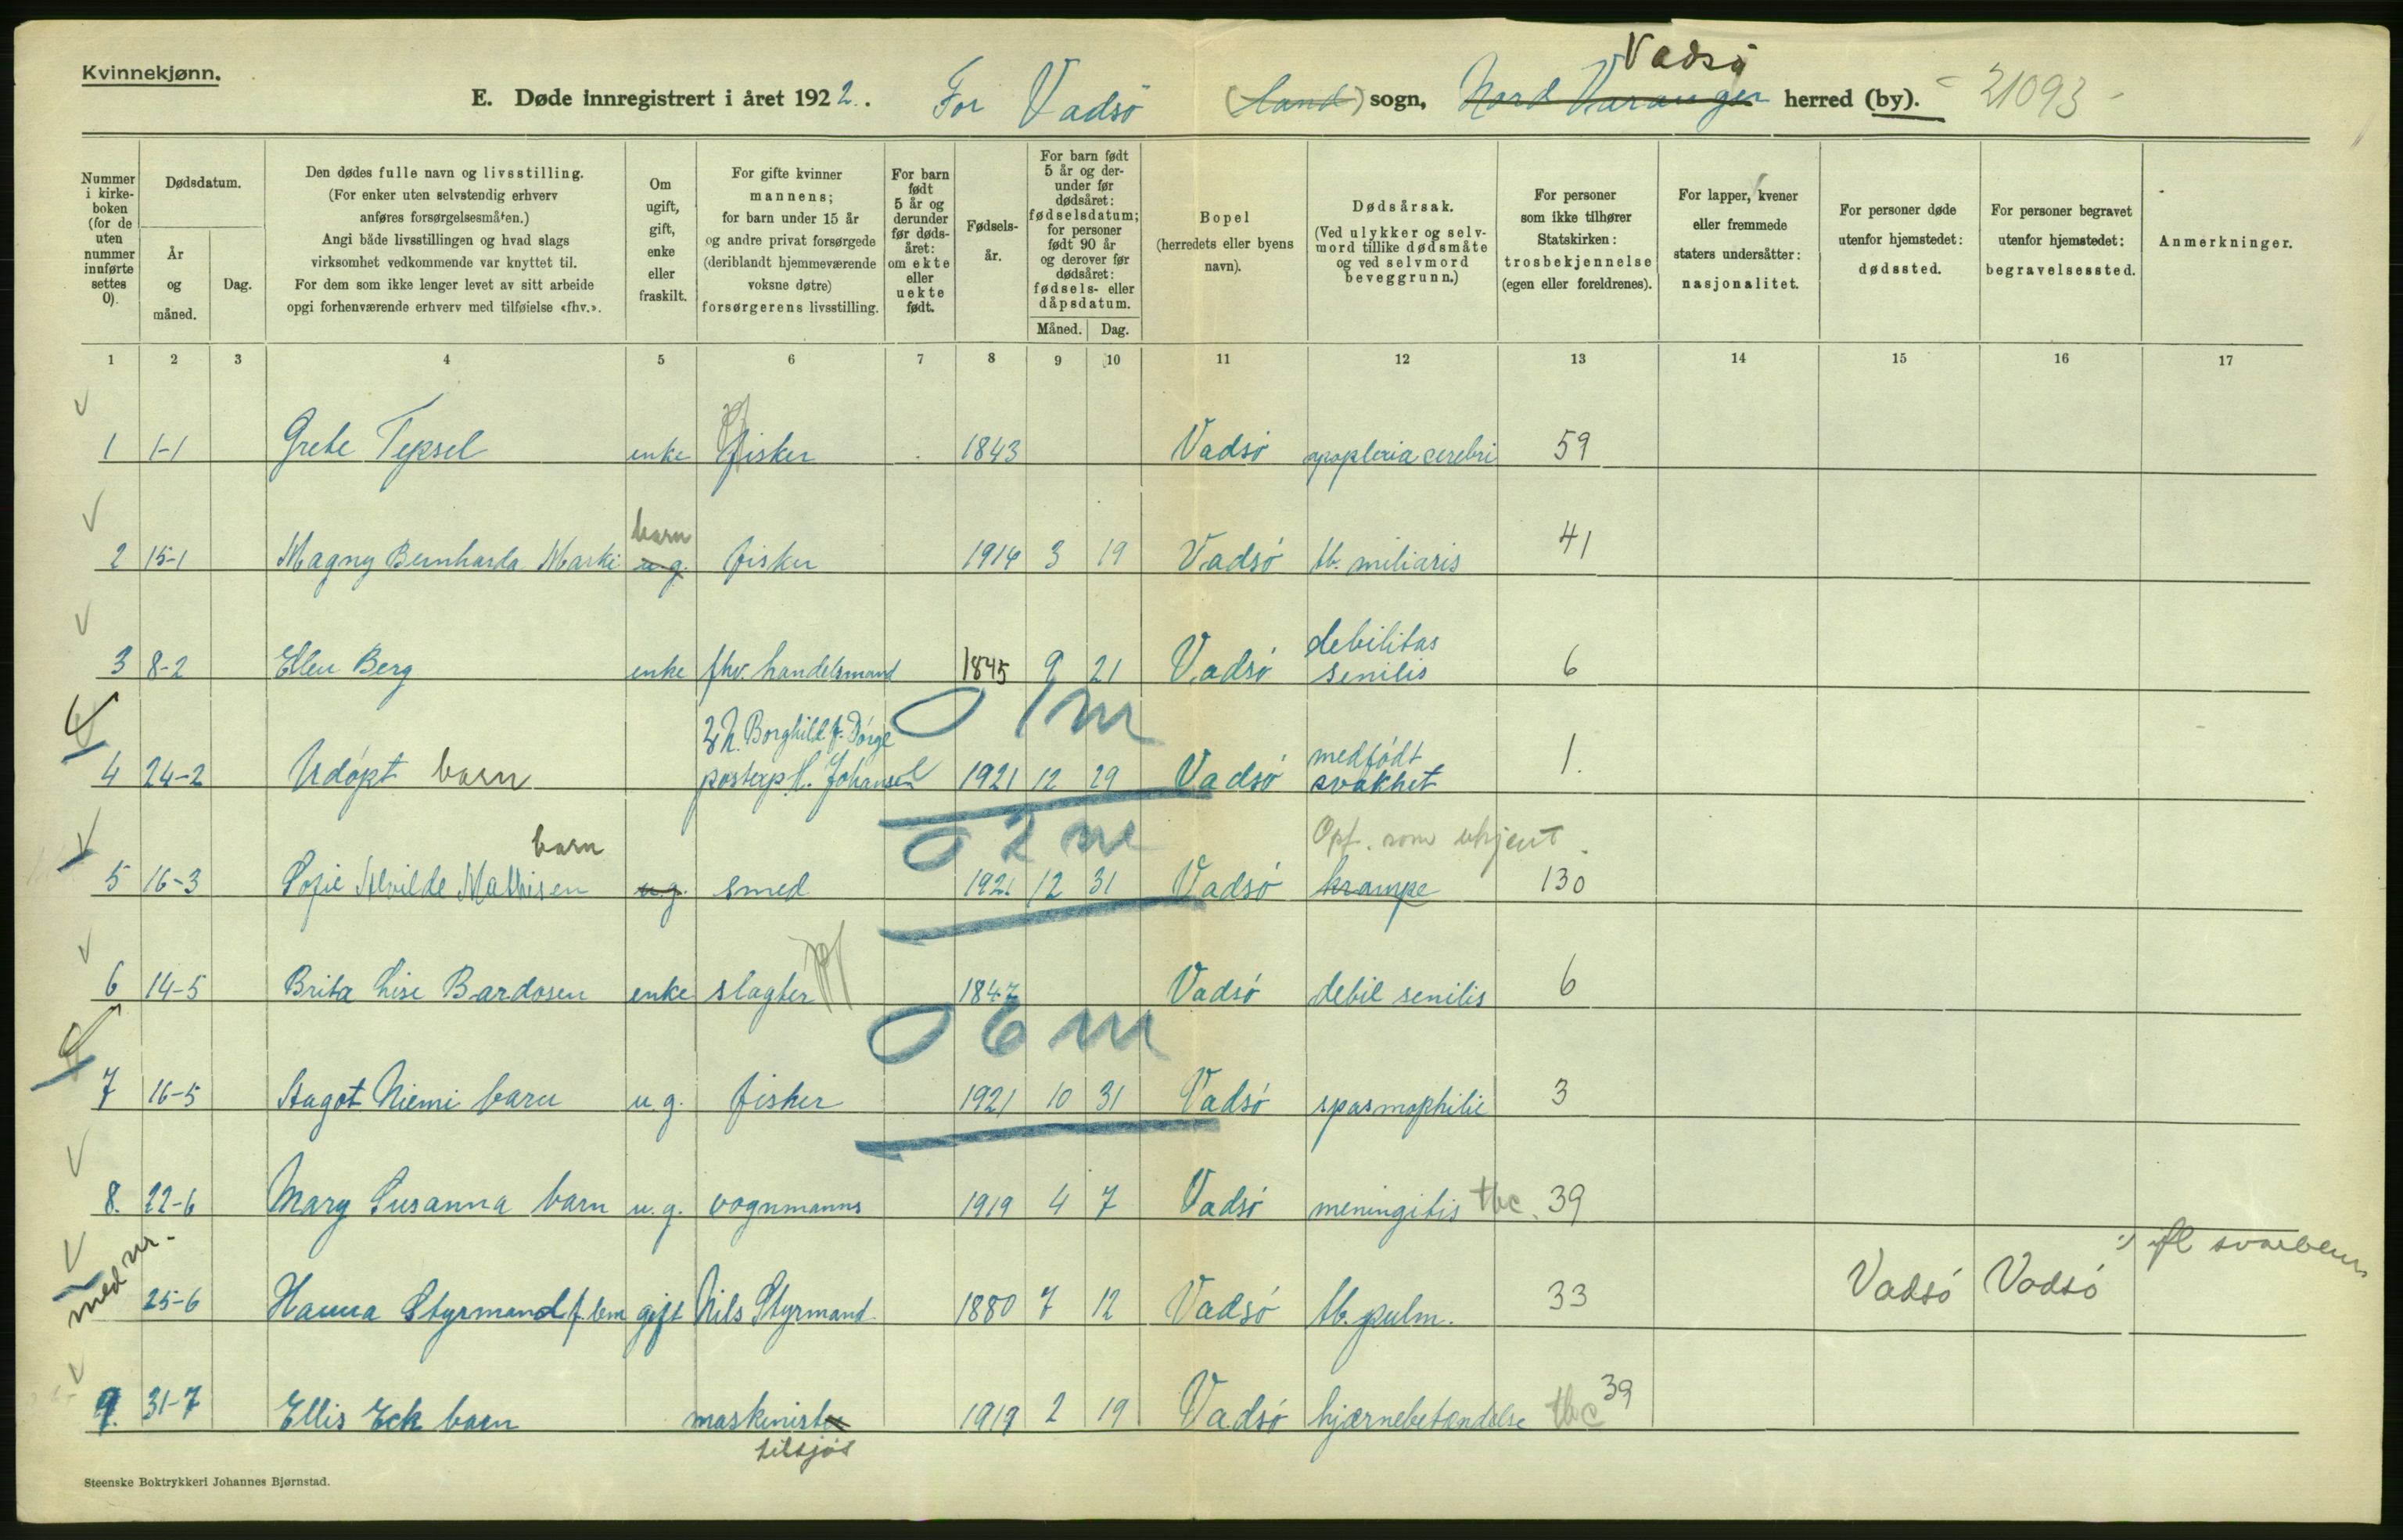 Kvinnekjønn.
E. Døde innregistrert i året 1922. For Vadsö (Land) sogn, Nord Varanger Vadsö herred (by). - 21093 -
Nummer i kirkeboken (for de uten nummer innførte settes 0).
Dødsdatum.
År og måned.
Dag.
Den dødes fulle navn og livsstilling.
(For enker uten selvstendig erhverv anføres forsørgelsesmåten.)
Angi både livsstillingen og hvad slags virksomhet vedkommende var knyttet til.
For dem som ikke lenger levet av sitt arbeide opgi forhenværende erhverv med tilføielse «fhv.».
Om ugift, gift, enke eller fraskilt.
For gifte kvinner mannens; for barn under 15 år og andre privat forsørgede (deriblandt hjemmeværende voksne døtre) forsørgerens livsstilling.
For barn født 5 år og derunder før dødsåret: om ekte eller uekte født.
Fødselsår.
For barn født 5 år og derunder før dødsåret: fødselsdatum; for personer født 90 år og derover før dødsåret: fødsels- eller dåpsdatum.
Måned. Dag.
Bopel (herredets eller byens navn).
Dødsårsak.
(Ved ulykker og selvmord tillike dødsmåte og ved selvmord beveggrunn.)
For personer som ikke tilhører Statskirken: trosbekjennelse (egen eller foreldrenes).
For lapper, kvener eller fremmede staters undersåtter: nasjonalitet.
For personer døde utenfor hjemstedet: dødssted.
For personer begravet utenfor hjemstedet: begravelsessted.
Anmerkninger.
1 2 3 4 5 6 7 8 9 10 11 12 13 14 15 16 17
1 1-1 Grete Tepsel enke fisker 1843 Vadsö apoplexia cerebri 59
barn
2 15-1 Magny Bernharda Marki u.g. fisker 1914 3 19 Vadsö tb. miliaris 41
debilitas
3 8-2 Ellen Berg enke fhv. handelsmand 1845 9 21 Vadsö senilis 6
0 1 m
Borghild f. Dörge medfödt
4 24-2 Udöpt barn postexp H. Johansen 1921 12 29 Vadsö svakhet 1.
0 2 m
barn Opf. som ukjent
5 16-3 Sofie Alvilde Mathisen u.g. smed 1921 12 31 Vadsö krampe 130
6 14-5 Brita Lise Bardosen enke slagter 1847 Vadsö debil senilis 6
0 6 m
7 16-5 Aagot Niemi barn u.g. fisker 1921 10 31 Vadsö spasmophilie 3
8. 22-6 Mary Susanna barn u.g. vognmanns 1919 4 7 Vadsö meningitis tbc. 39
med nr.
25-6 Hanna Styrmand f. Lem gift Nils Styrmand 1880 7 12 Vadsö tb. pulm. 33 Vadsö Vadsö
9. 31-7 Ellis Eck barn maskinist 1919 2 19 Vadsö hjernebetændelse tbc 39
tilsjös
Steenske Boktrykkeri Johannes Bjørnstad.